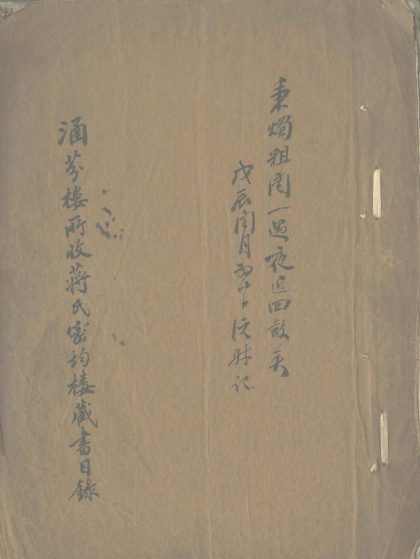 秉燭粗閱一過夜近四鼓矣
戊辰閏月初十日
涵芬樓所收蔣氏密均樓藏書目錄